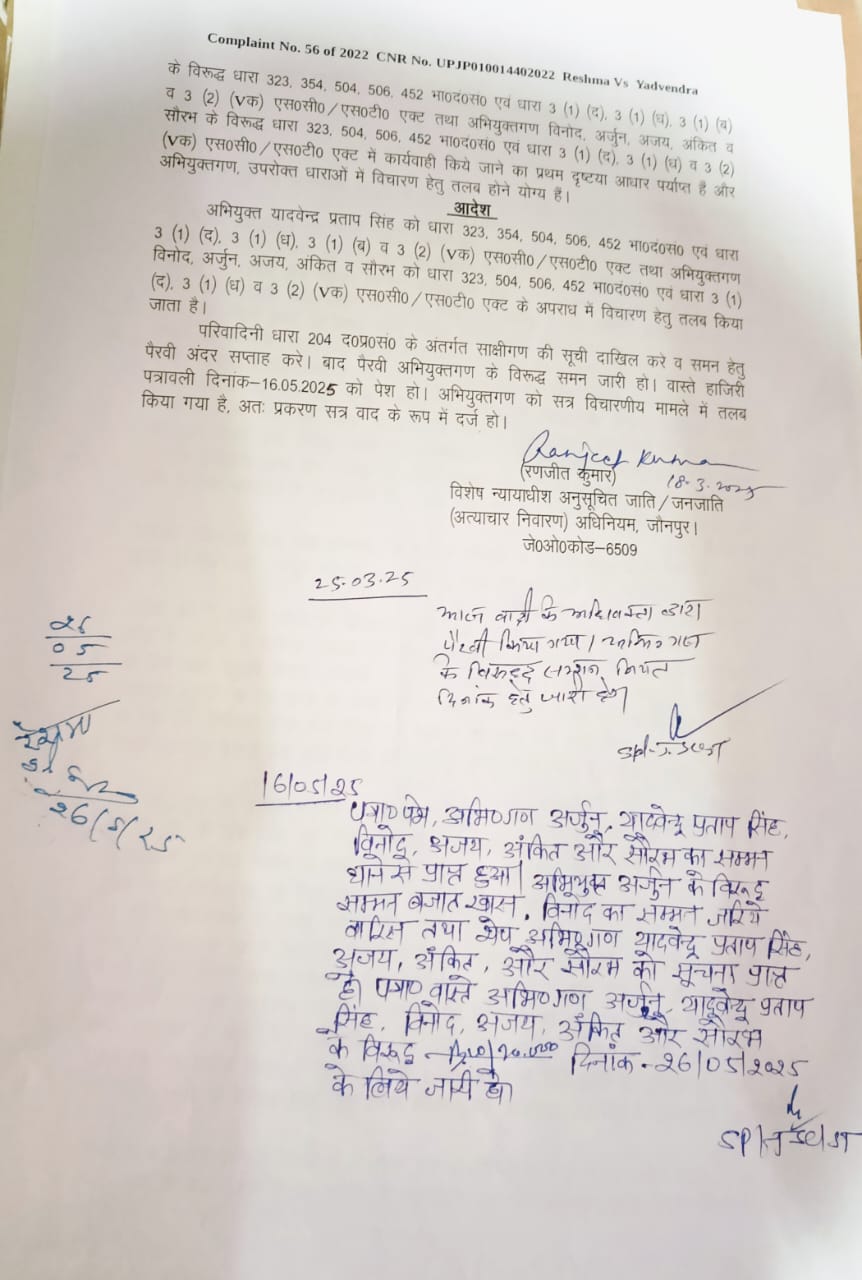 Complaint No. 56 of 2022 CNR No. UPJP010014402022 Reshma Vs Yadvendra
के विरूद्ध धारा 323, 354, 504, 506, 452 भा0द0सं0 एवं धारा 3 (1) (द), 3 (1) (ध), 3 (1) (ब)
व 3 (2) (Vक) एस0सी0/एस0टी0 एक्ट तथा अभियुक्तगण विनोद, अर्जुन, अजय, अंकित व
सौरभ के विरूद्ध धारा 323, 504, 506, 452 भा0द0सं0 एवं धारा 3 (1) (द), 3 (1) (ध) व 3 (2)
(Vक) एस0सी0/एस0टी0 एक्ट में कार्यवाही किये जाने का प्रथम दृष्टया आधार पर्याप्त है और
अभियुक्तगण, उपरोक्त धाराओं में विचारण हेतु तलब होने योग्य हैं।
आदेश
अभियुक्त यादवेन्द्र प्रताप सिंह को धारा 323, 354, 504, 506, 452 भा0द0सं0 एवं धारा
3 (1) (द), 3 (1) (ध), 3 (1) (ब) व 3 (2) (Vक) एस0सी0/एस0टी0 एक्ट तथा अभियुक्तगण
विनोद, अर्जुन, अजय, अंकित व सौरभ को धारा 323, 504, 506, 452 भा0द0सं0 एवं धारा 3 (1)
(द), 3 (1) (ध) व 3 (2) (Vक) एस0सी0/एस0टी0 एक्ट के अपराध में विचारण हेतु तलब किया
जाता है।
परिवादिनी धारा 204 द0प्र0सं0 के अंतर्गत साक्षीगण की सूची दाखिल करे व समन हेतु
पैरवी अंदर सप्ताह करे। बाद पैरवी अभियुक्तगण के विरूद्ध समन जारी हो। वास्ते हाजिरी
पत्रावली दिनांक–16.05.2025 को पेश हो। अभियुक्तगण को सत्र विचारणीय मामले में तलब
किया गया है, अतः प्रकरण सत्र वाद के रूप में दर्ज हो।
Ranjeet Kumar
(रणजीत कुमार) 18-3-2025
विशेष न्यायाधीश अनुसूचित जाति/जनजाति
(अत्याचार निवारण) अधिनियम, जौनपुर।
जे0ओ0कोड–6509
25.03.25
आज वादी के अधिवक्ता द्वारा
पैरवी किया गया।
के विरूद्ध सम्मन नियत
दिनांक हेतु जारी हो।
25
05
25
रेशमा
26/5/25
16/05/25
पत्रा० पेश, अभि०गण अर्जुन, यादवेन्द्र प्रताप सिंह,
विनोद, अजय, अंकित और सौरभ का सम्मन
थाने से प्राप्त हुआ। अभियुक्त अर्जुन के विरूद्ध
सम्मन बजात खास, विनोद का सम्मन जरिये
वारिस तथा शेष अभि०गण यादवेन्द्र प्रताप सिंह,
अजय, अंकित, और सौरभ को सूचना प्राप्त
है। पत्रा० वास्ते अभि०गण अर्जुन, यादवेन्द्र प्रताप
सिंह, विनोद, अजय, अंकित और सौरभ
के विरूद्ध 20,000 दिनांक - 26/05/2025
के लिये जारी हो